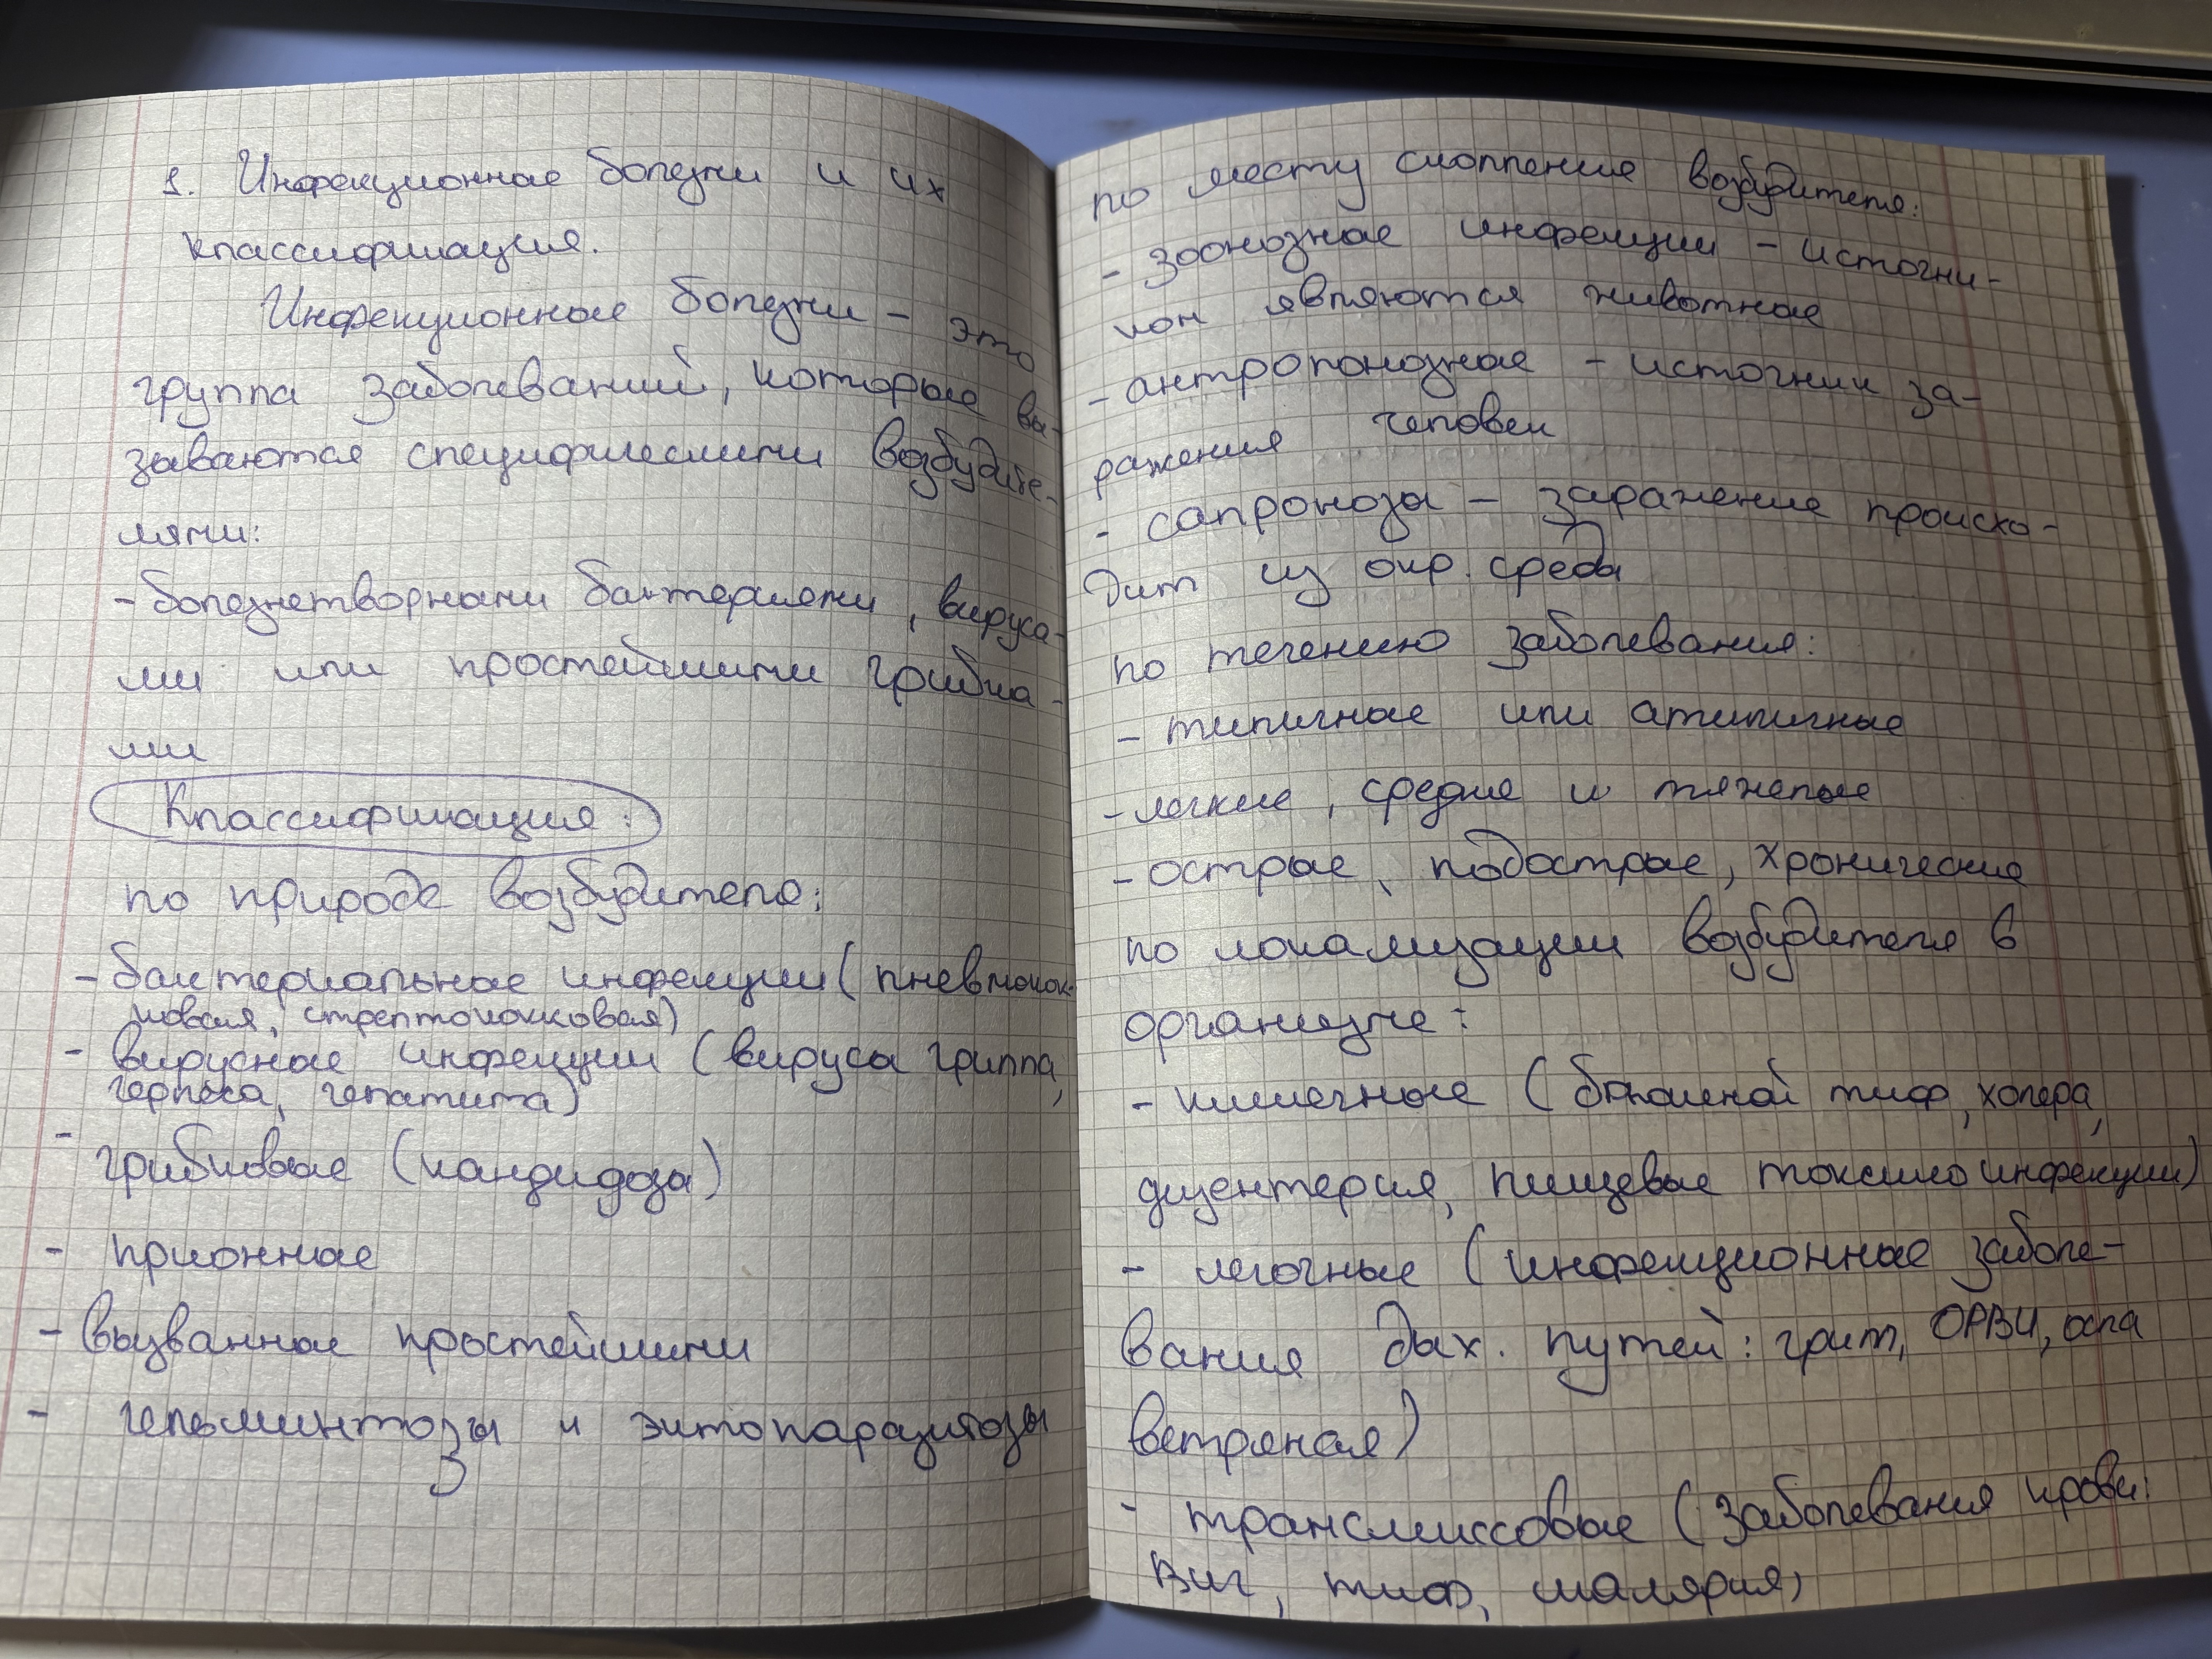 1. Инфекционные болезни и их
классификация.
Инфекционные болезни - это
группа заболеваний, которые вы-
зываются специфическими возбудите-
лями:
- болезнетворными бактериями, вируса-
ми или простейшими грибка-
ми
Классификация:
по природе возбудителя:
- бактериальные инфекции (пневмокок-
ковая, стрептококковая)
- вирусные инфекции (вирусы гриппа,
герпеса, гепатита)
- грибковые (кандидозы)
- прионные
- вызванные простейшими
- гельминтозы и эктопаразитозы
по месту скопления возбудителя:
- зоонозные инфекции - источни-
ком являются животные
- антропонозные - источник за-
ражения человек
- сапронозы - заражение происхо-
дит из окр. среды
по течению заболевания:
- типичные или атипичные
- легкие, средние и тяжелые
- острые, подострые, хронические
по локализации возбудителя в
организме:
- кишечные (брюшной тиф, холера,
дизентерия, пищевые токсикоинфекции)
- легочные (инфекционные заболе-
вания дых. путей: грипп, ОРВИ, оспа
ветряная)
- трансмиссовые (заболевания крови:
ВИЧ, тиф, малярия)